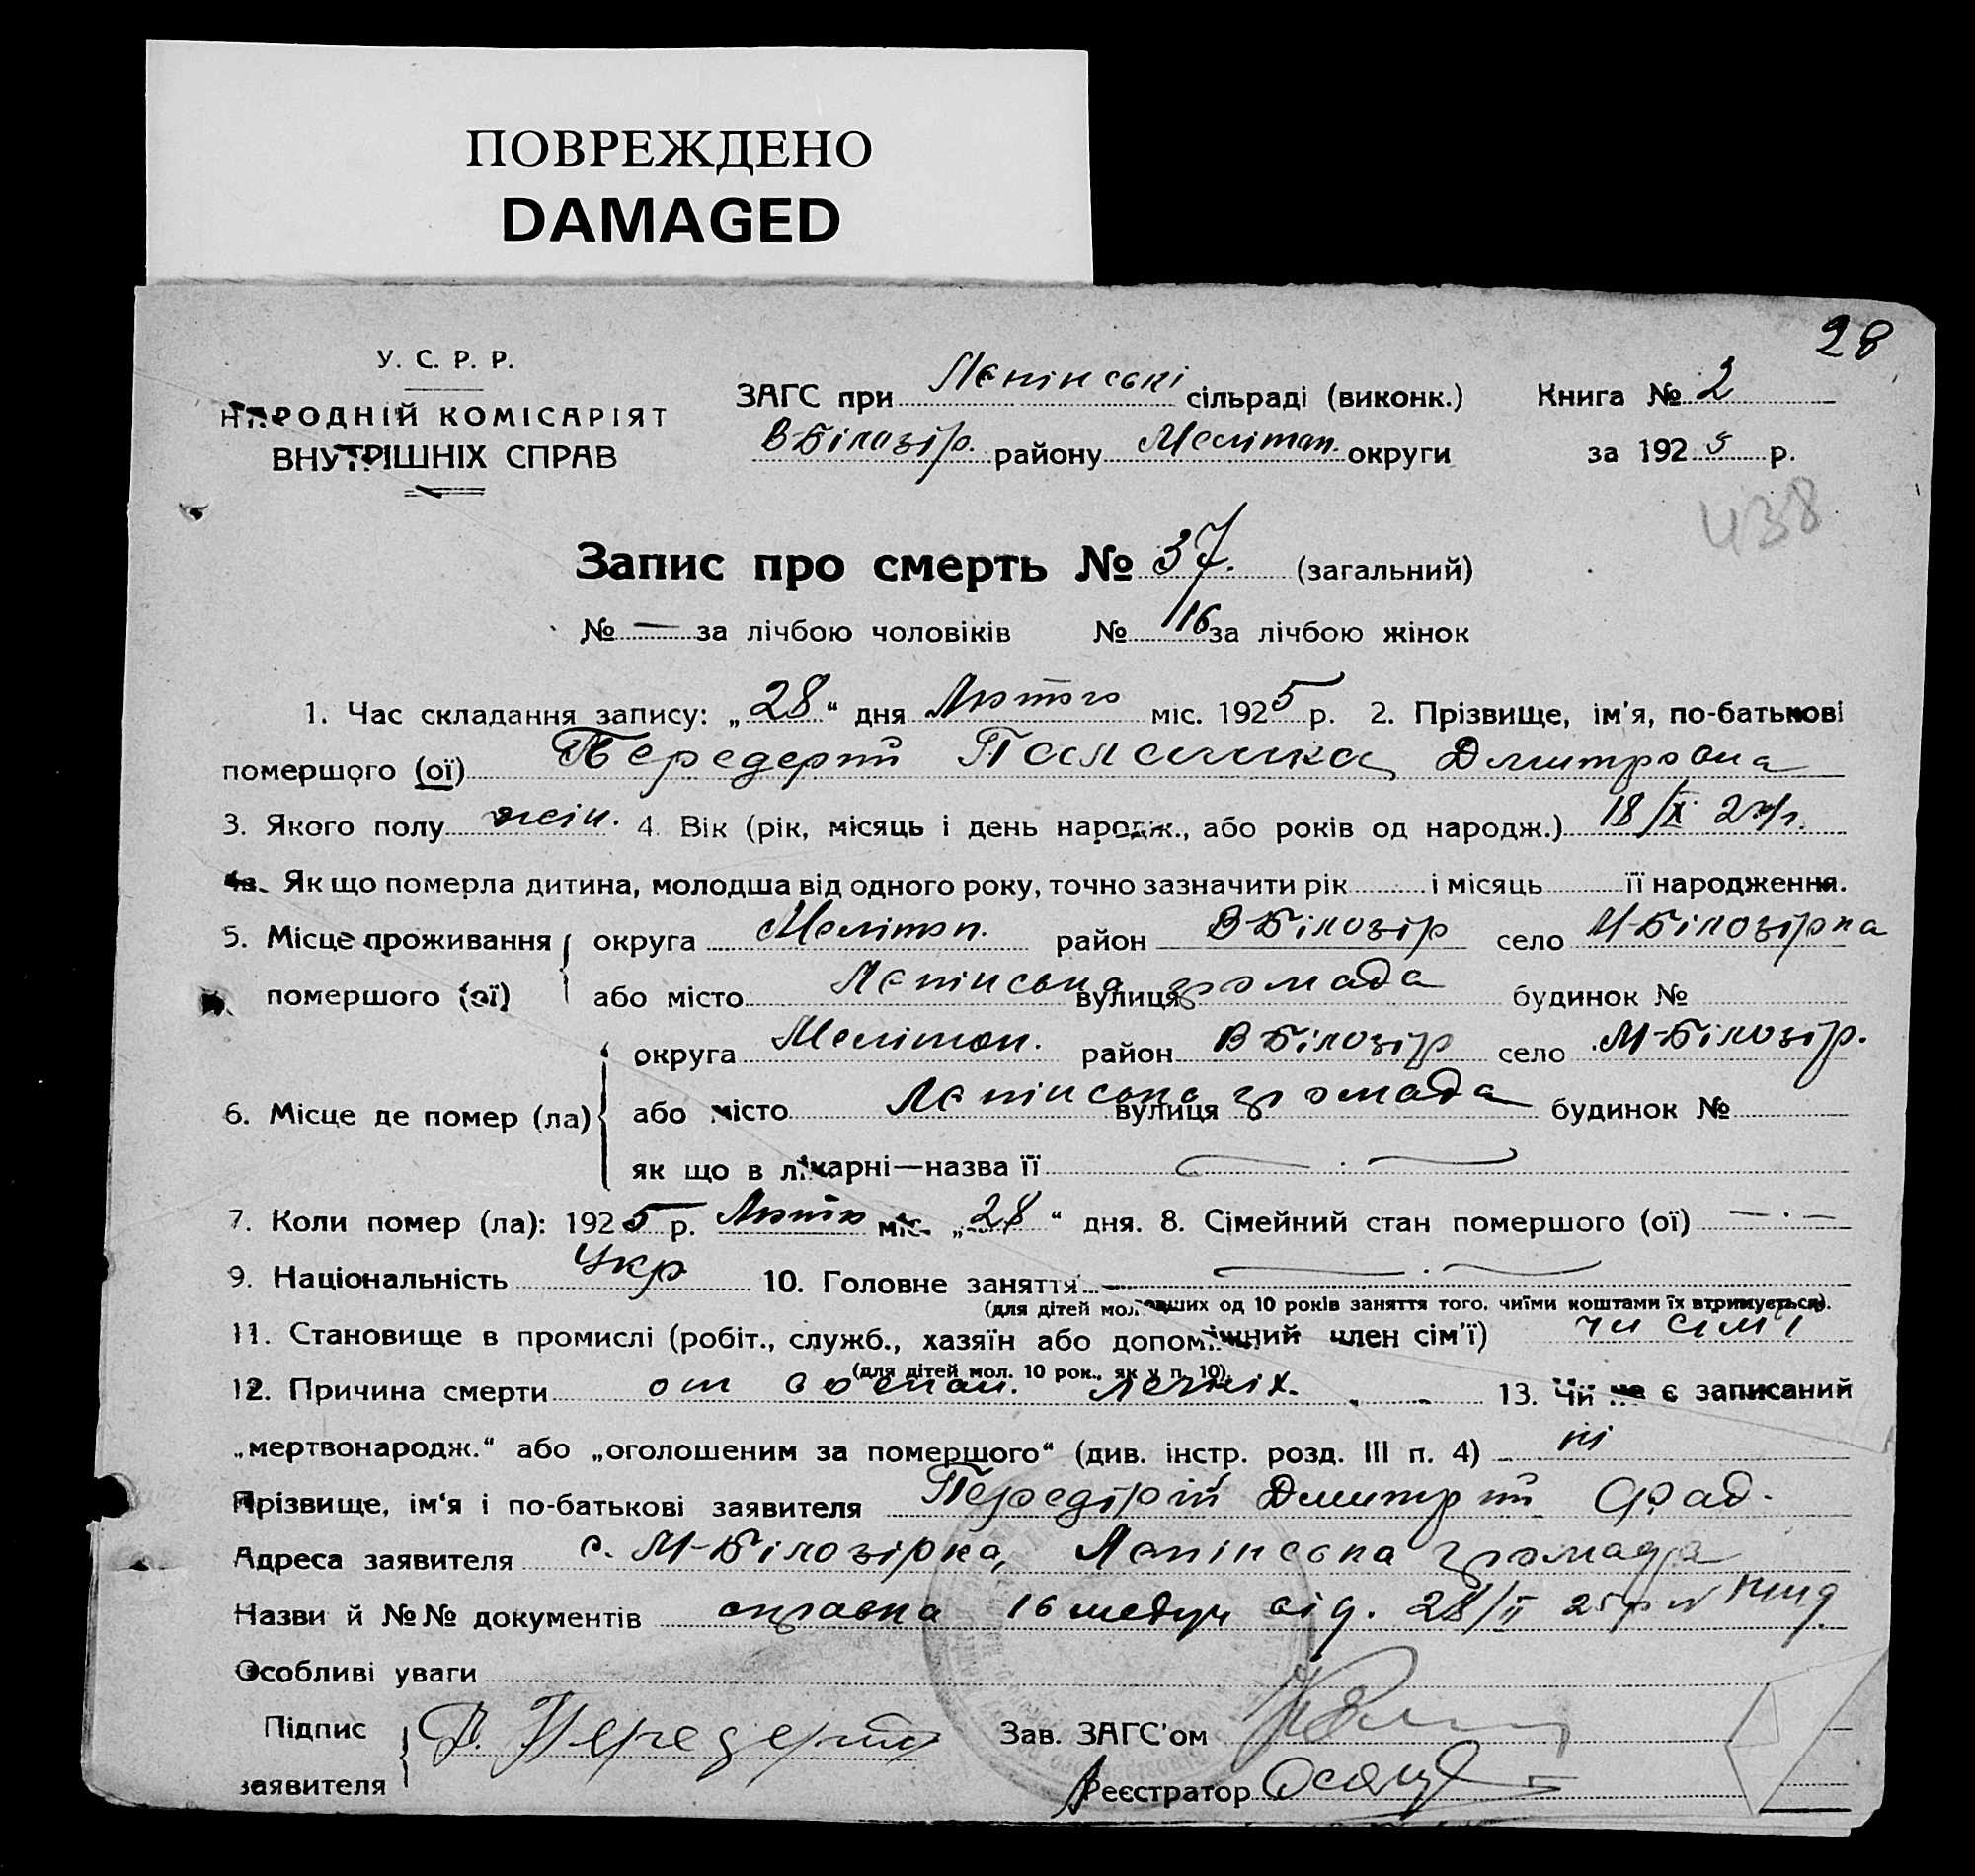 ПОВРЕЖДЕНО
DAMAGED
28
У. С. Р. Р.
НАРОДНІЙ КОМІСАРІЯТ
ВНУТРІШНІХ СПРАВ
ЗАГС при Ленінські сільраді (виконк.)
В-Білозір. району Меліtоп. округи
Книга № 2
за 1925 р.
438
Запис про смерть № 37. (загальний)
№ — за лічбою чоловіків № 16 за лічбою жінок
1. Час складання запису: „28“ дня Лютого міс. 1925 р. 2. Прізвище, ім'я, по-батькові
помершого (ої) Передерій Дмитровна
3. Якого полу жін. 4. Вік (рік, місяць і день народж., або років од народж.) 18/X 24 р.
4а. Як що померла дитина, молодша від одного року, точно зазначити рік і місяць її народження.
5. Місце проживання помершого (ої) округа Меліtоп. район В-Білозір село М-Білозірка
або місто Ленінська громада вулиця будинок №
6. Місце де помер (ла) округа Меліtоп. район В-Білозір село М-Білозір.
або місто Ленінська громада вулиця будинок №
як що в лікарні—назва її —·—
7. Коли помер (ла): 1925 р. Лютто міс. „28“ дня. 8. Сімейний стан помершого (ої) —·—
9. Національність Укр 10. Головне заняття —·—
(для дітей молодших од 10 років заняття того, чиїми коштами їх втримується).
11. Становище в промислі (робіт., служб., хазяїн або допоміжний член сім'ї) чл сімї
(для дітей мол. 10 рок., як у п. 10).
12. Причина смерти от воспал. легких. 13. Чи не є записаний
„мертвонародж.“ або „оголошеним за помершого“ (див. інстр. розд. III п. 4) ні
Прізвище, ім'я і по-батькові заявителя Передірій Дмитрий Фад.
Адреса заявителя с. М-Білозірка, Ленінська громада
Назви й №№ документів справка 16 медуч від. 28/II 25 р
Особливі уваги
Підпис заявителя Д. Передерий
Зав. ЗАГС'ом
Реєстратор